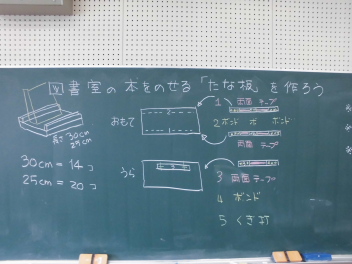 図書室の本をのせる「たな板」を作ろう
長さ30cm
25cm
30cm = 14コ
25cm = 20コ
おもて
1 両面テープ
2 ボンド
ボンド
両面テープ
うら
3 両面テープ
4 ボンド
5 くぎ打